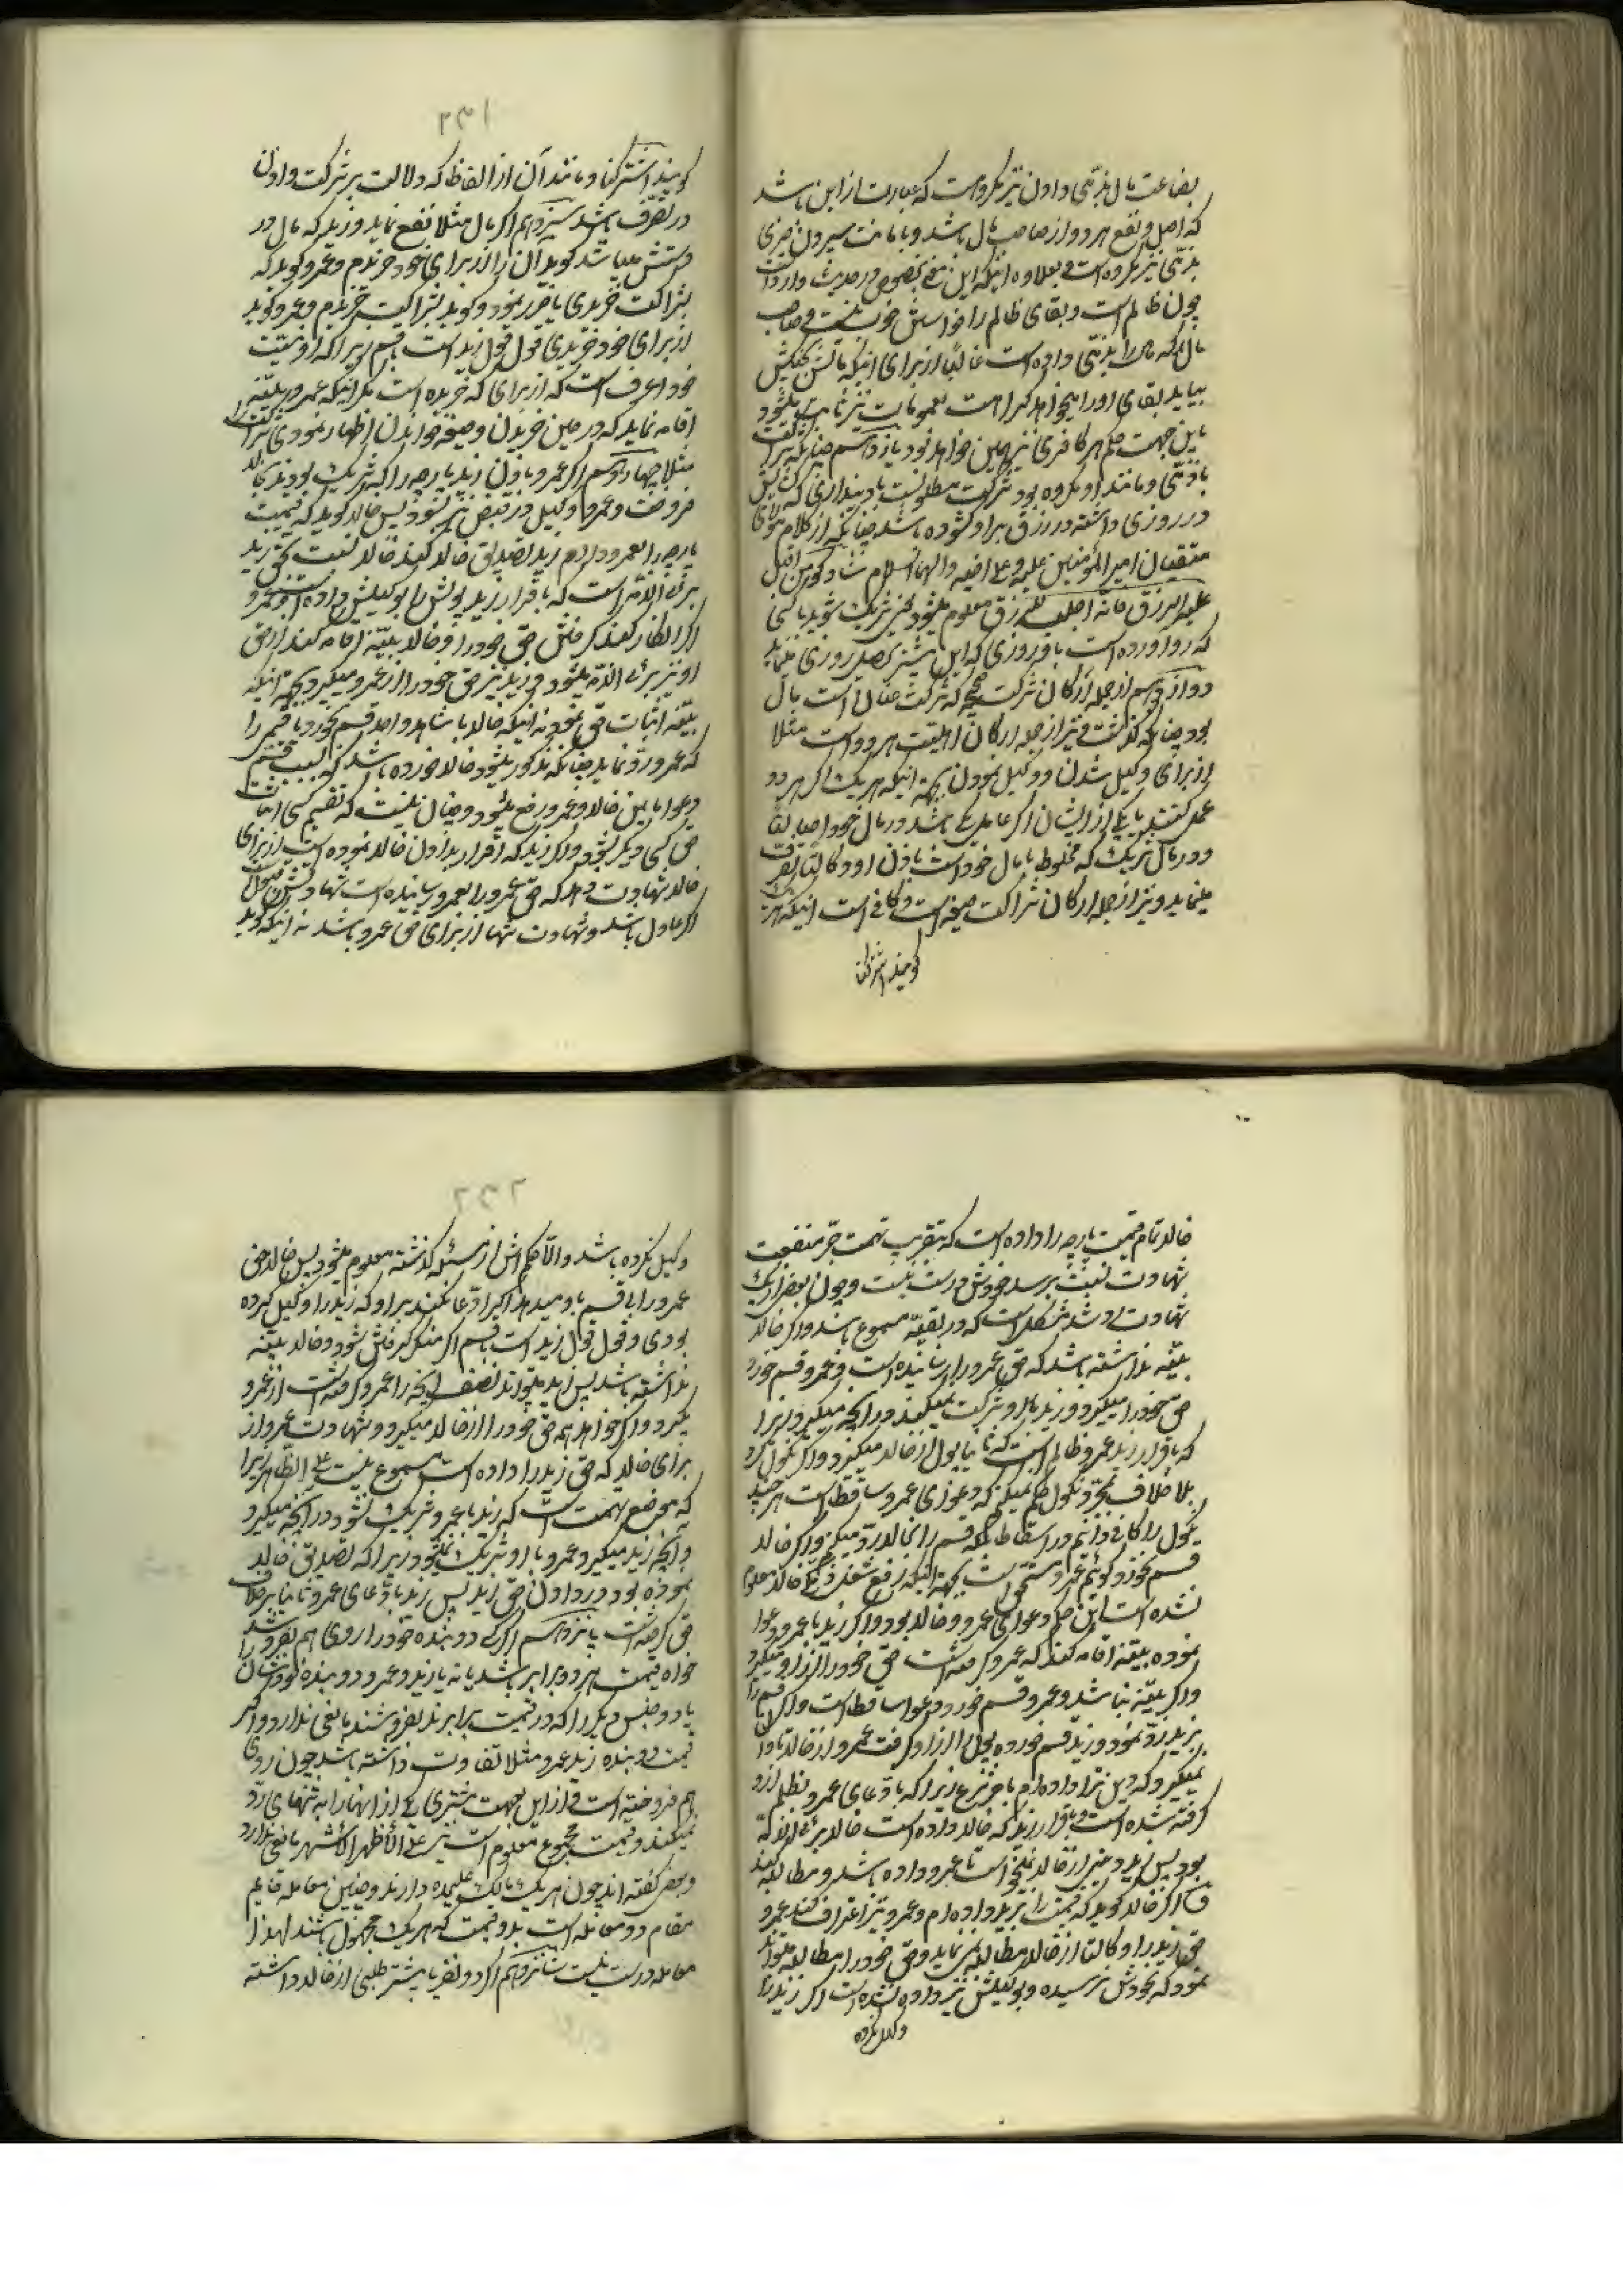 بضاعت مال بذمّی دادن نیز مکروه است که عبارت از این باشد
که اصل و نفع هر دو از صاحب مال باشد و بامانت سپردن چیزی
بذمّی نیز مکروه است بعلاوه اینکه این نهی بخصوص در حدیث وارد است
چون ظالم است و بقای ظالم را خواستن خوب نیست و صاحب
مال که مال را بذمّی داده است غالباً از برای اینکه مالش بکفش
بیاید بقای او را میخواهد کراهت بعمومات نیز ثابت میشود
باین جهت حکم هر کافری نیز چنین خواهد بود یازدهم چنانکه شراکت
با ذمّی و مانند او مکروه بود شرکت مطلوبست با دینداری که
در روزی داشته در رزق بر او گشوده باشد چنانکه از کلام مولای
متقیان امیر المؤمنین علیه و علی اخیه و آلهما السلام شارکوا من اقبل
علیه الرزق فانّه اجلب للرزق معلوم میشود یعنی شریک شوید با کسی
که رو آورده است باو روزی که این بیشتر تحصیل روزی مینماید
دوازدهم از جمله ارکان شرکت صحیحه که شرکت عنانی است مال
بود چنانکه گذشت و نیز از جمله ارکان اهلیّت هر دو است مثلا
از برای وکیل شدن و وکیل نمودن بجهة اینکه هر یک اگر هر دو
عمل کنند یا یکی از ایشان اگر عامل یکی باشد در مال خود اصالةً
و در مال شریک که مخلوط با مال خود است باذن او وکالةً تصرّف
مینماید و نیز از جمله ارکان شراکت صیغه است و کافی است اینکه هر یک
گویند اشترکنا
۲۳۱
گویند اشترکنا و مانند آن از الفاظ که دلالت بر شرکت و اذن
در تصرّف باشد سیزدهم اگر مال مثلا نفع نماید و زید که مال در
دستش میباشد گوید آن را از برای خود خریدم و عمرو گوید که
بشراکت خریدی یا ضرر نمود و گوید بشراکت خریدم و عمرو گوید
از برای خود خریدی قول قول زید است با قسم زیرا که او بنیّت
خود اعرف است که از برای که خریده است مگر اینکه عمرو بیّنه
اقامه نماید که در حین خریدن و صیغه خواندن اظهار نمودی شراکت را
مثلا چهاردهم اگر عمرو باذن زید پارچه را که شریک بودند بخالد
فروخت و عمرو وکیل در قبض نیز نبود پس خالد گوید که قیمت
پارچه را بعمرو دادم زید تصدیق خالد کند خالد نسبت بحق زید
بریء الذمّه است که باقرار زید پولش را بوکیلش داده است و عمرو
اگر انکار کند گرفتن حق خود را و خالد بیّنه اقامه کند از حق
او نیز بریء الذمّه میشود و زید نیز حق خود را از عمرو میگیرد بجهة اینکه
بیّنه اثبات حق نمود نه اینکه خالد با شاهد واحد قسم بخورد یا قسمی را
که عمرو ردّ نماید چنانکه مذکور میشود خالد خورده باشد که بسبب قسم
دعوا مابین خالد و عمرو رفع میشود و چنان نیست که بقسم کسی اثبات
حق کسی دیگر شود و اگر زید که اقرار بدادن خالد نموده است از برای
خالد شهادت دهد که حق عمرو را بعمرو رسانیده است شهادتش مقبول
اگر عادل باشد و شهادت تنها از برای حق عمرو باشد نه اینکه گوید
خالد تمام قیمت پارچه را داده است که بتقریب تهمت جرّ منفعت
شهادت نسبت برسد خودش درست نیست و چون بعض از یک
شهادت رد شد مشکل است که در بقیّه مسموع باشد و اگر خالد
بیّنه نداشته باشد که حق عمرو را رسانیده است و عمرو قسم خورد
حق خود را میگیرد و زید با او شرکت نمیکند در آنچه میگیرد زیرا
که باقرار زید عمرو ظالم است که ثانیا پول از خالد میگیرد و اگر نکول کرد
بلا خلاف بمجرّد نکول حکم نمیکنیم که دعوای عمرو ساقط است هر چند
نکول را کافی دانیم در اسقاط بلکه قسم را بخالد ردّ میکنیم و اگر خالد
قسم نخورد گوئیم عمرو مستحق است بجهة اینکه رفع شغل ذمّه خالد معلوم
نشده است این حکم دعوای عمرو و خالد بود و اگر زید با عمرو دعوا
نموده بیّنه اقامه کند که عمرو گرفته است حق خود را از او میگیرد
و اگر بیّنه نباشد و عمرو قسم خورد دعوا ساقط است و اگر قسم را
بزید ردّ نمود و زید قسم خورد پول را از او گرفت عمرو از خالد تاوان
نمیگیرد که دین ترا داده ام باخر نزاع زیرا که بادّعای عمرو بظلم از او
گرفته شده است و باقرار زید که خالد داده است خالد بریء الذمّه
بود پس زید دیگر از خالد نمیخواست تا عمرو داده باشد و مطالبه کند
و اگر خالد گوید که قیمت را بزید داده ام و عمرو نیز اعتراف کند عمرو
حق زید را وکالةً از خالد مطالبه نمینماید و حق خود را مطالبه میتواند
نمود که بخودش نرسیده و بوکیلش نیز داده نشده است اگر زید را
وکیل نکرده
۲۳۲
وکیل نکرده باشد و الّا حکمش از مسئله گذشته معلوم میشود پس خالد حق
عمرو را بی قسم باو میدهد اگر ادّعا نکند بر او که زید را وکیل کرده
بودی و قول قول زید است با قسم اگر منکر گرفتن شود و خالد بیّنه
نداشته باشد پس زید میتواند نصف آنچه را عمرو گرفته است از عمرو
بگیرد و اگر خواهد همه حق خود را از خالد میگیرد و شهادت عمرو از
برای خالد که حق زید را داده است مسموع نیست علی الظاهر زیرا
که موضع تهمت است که زید با عمرو شریک نشود در آنچه میگیرد
و آنچه زید میگیرد عمرو با او شریک نمیشود زیرا که تصدیق خالد
نموده بود در دادن حق زید پس زید بادّعای عمرو ثانیا بر خلاف
حق گرفته است پانزدهم اگر دو بنده خود را روی هم بفروشند
خواه قیمت هر دو برابر باشد یا نه یا زید و عمرو دو بنده خودشان را
یا دو جنس دیگر را که در قیمت برابرند بفروشند مانعی ندارد و اگر
قیمت دو بنده زید و عمرو مثلا تفاوت داشته باشد چون روی
هم فروخته است و از این جهت مشتری یکی از آنها را به تنهائی ردّ
نمیکند و قیمت مجموع معلوم است نیز علی الأظهر الأشهر مانعی ندارد
و بعض گفته اند چون هر یک مالک علیحده دارند و چنین معامله قایم
مقام دو معامله است بدو قیمت که هر یک مجهول باشند لهذا
معامله درست نیست شانزدهم اگر دو نفر یا بیشتر طلبی از خالد داشته